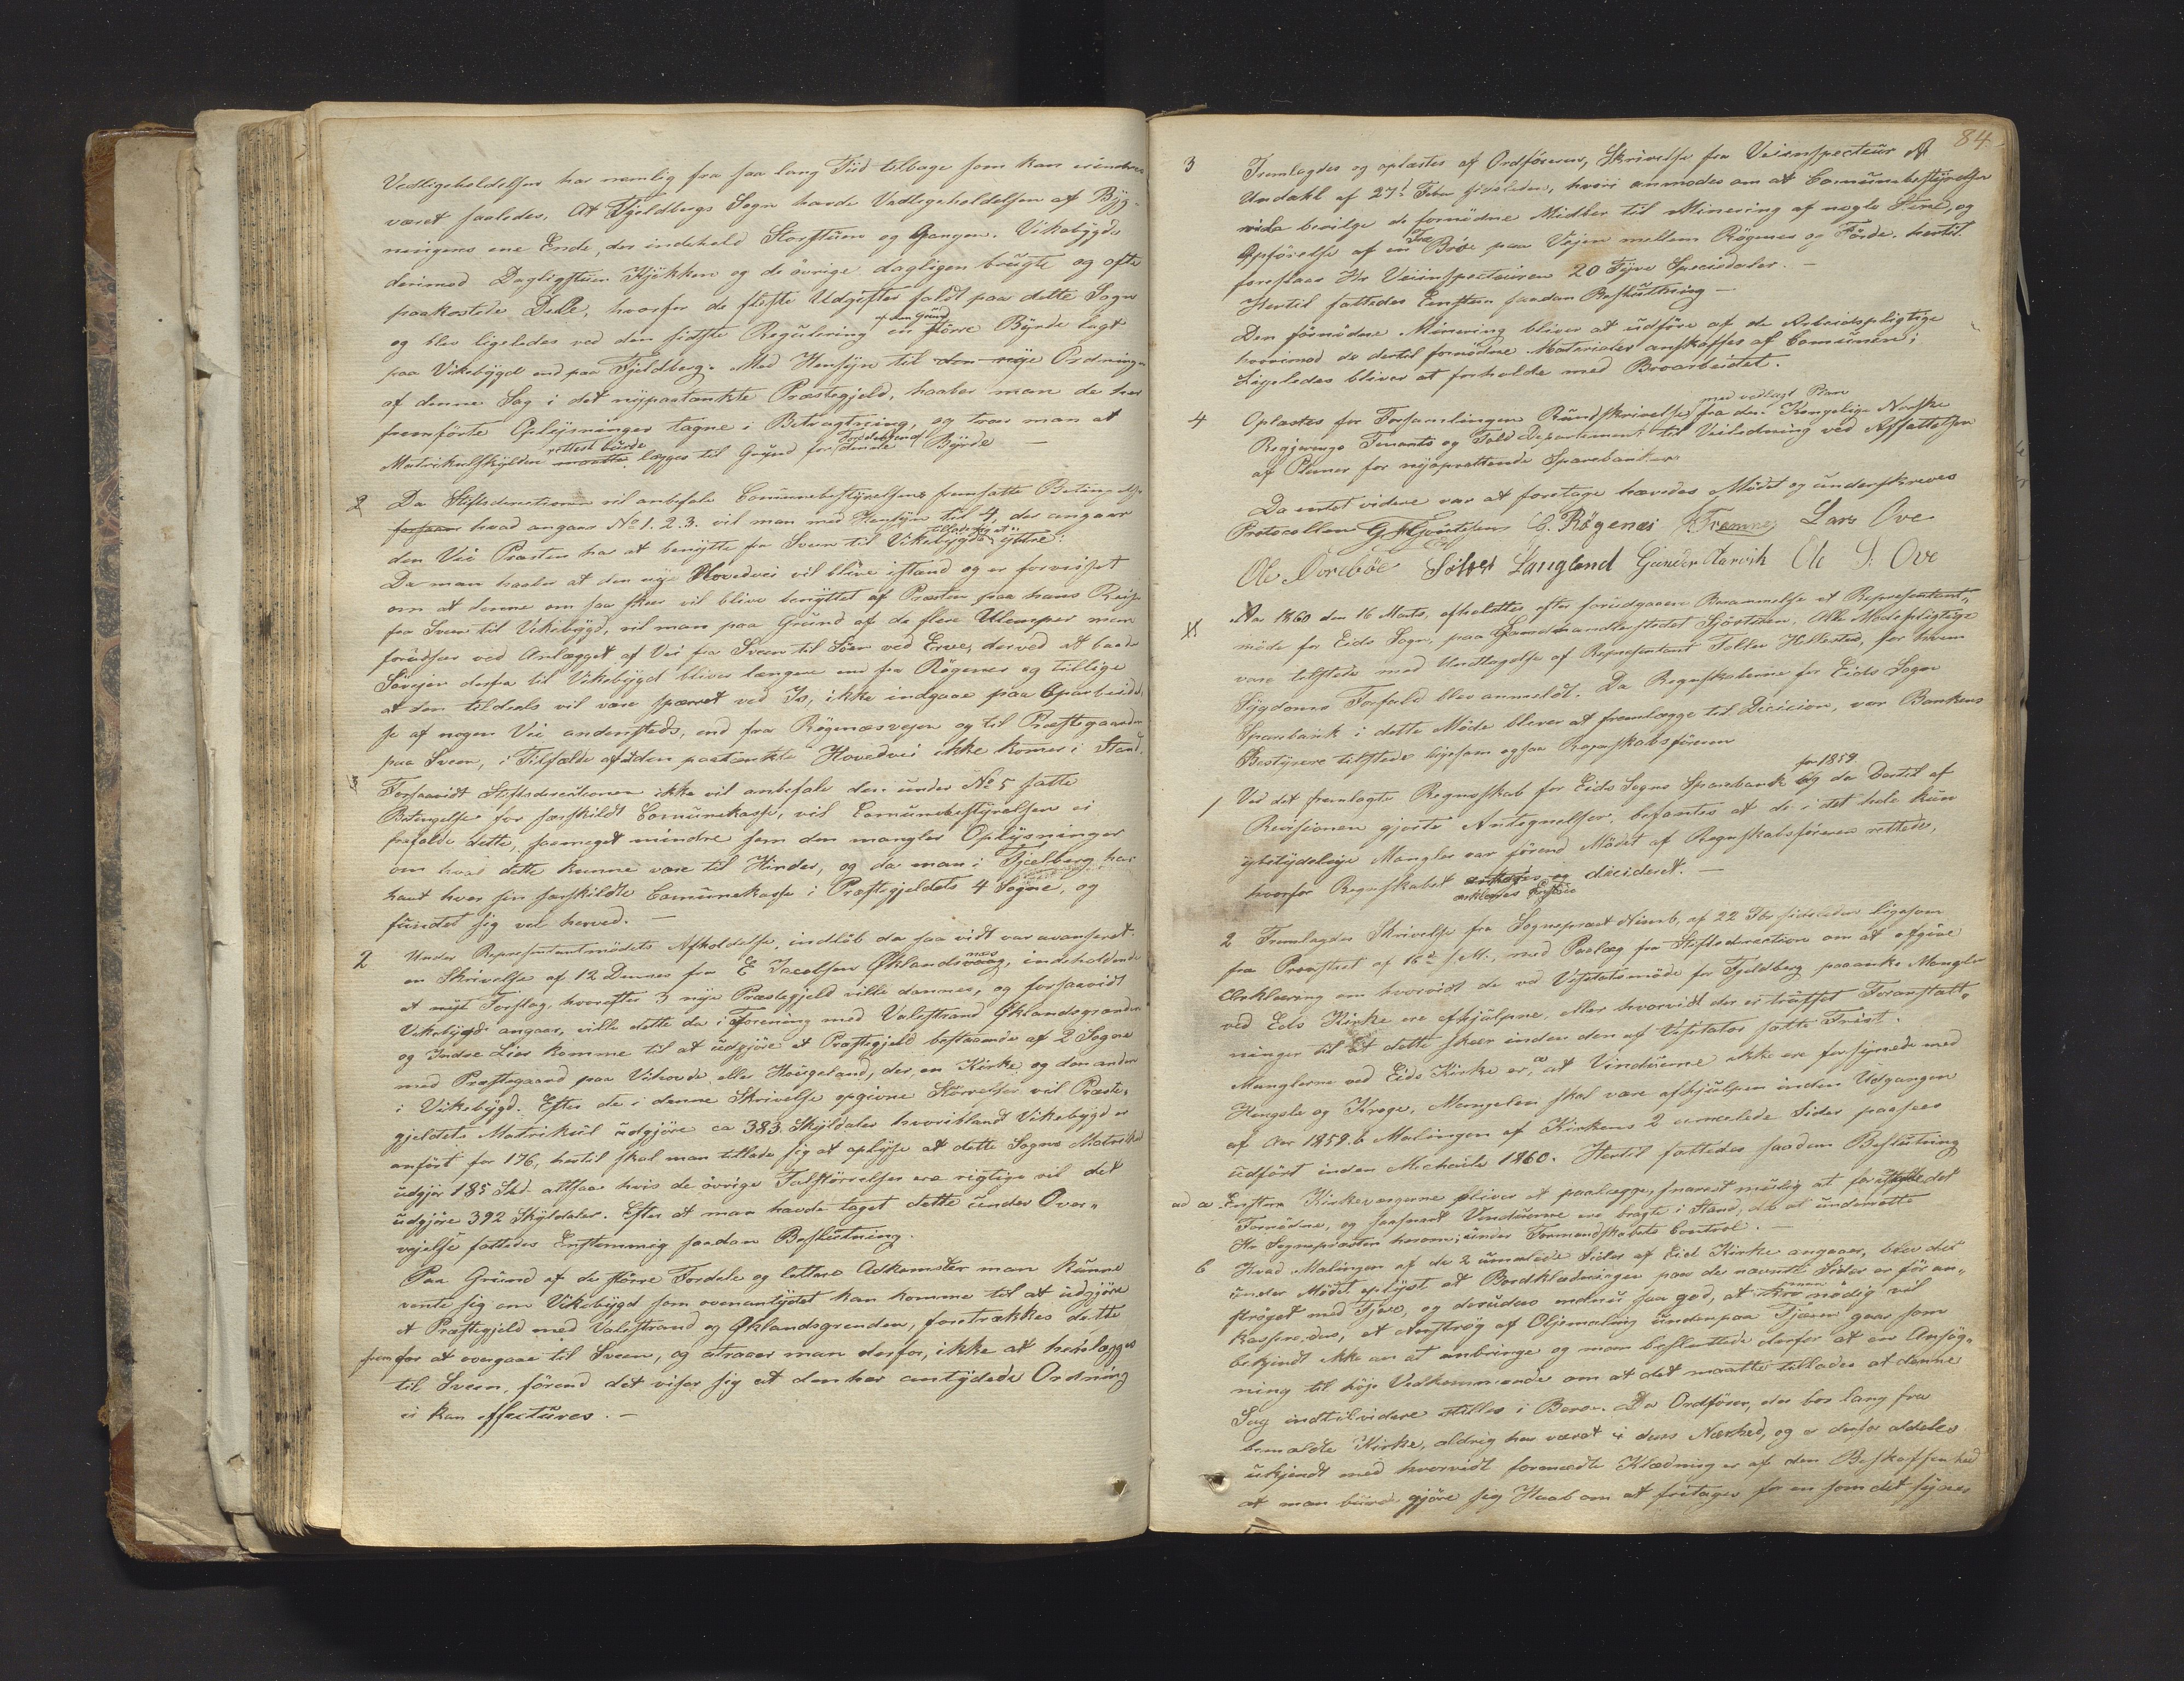 Vedligeholdelsen har nemlig fra saa lang Tiid tilbage som kan erindres
været saaledes, At Fjeldbergs Sogn havde Vedligeholdelsen af Byg-
ningens ene Ende, der indeheld Storstuen og Gangen. Vikebygds
derimod Dagligstuen Kjøkken og de øvrige dagligen brugte og ofte
paakostede Dele, hvorfor de fleste Udgifter faldt paa dette Sogn
og blev ligeledes ved den sidste Regulering af den Grund en større Byrde lagt
paa Vikebygd end paa Fjeldberg. Med Hensyn til den nye Ordning
af denne Sag i det nypaatænkte Præstegjeld, haaber man de her
fremførte Oplysninger tagne i Betragtning, og troer man at
Matrikulskylden rettest burde lægges til Grund for denne Byrde —
2 Da Stiftsdirectionen vil anbefale Comunebestyrelsens fremsatte Betingelse
forsaae hvad angaar No 1. 2. 3. vil man med Hensyn til 4, der angaar
den Vei Præsten har at benytte fra Sveen til Vikebygd tilladeligst yttre:
Da man haaber at den nye Hovedvei vil blive istand og er forvisset
om at denne om saa skeer vil blive benyttet af Præsten paa hans Reise
fra Sveen til Vikebygd, vil man paa Grund af de flere Ulemper man
forudser ved Anlægget af Vei fra Sveen til Søen ved Erve, derved at baade
Søvejen derfra til Vikebygd bliver længere end fra Røgenes og tillige
at den tildeels vil være spærret ved Is, ikke indgaae paa Oparbeidel-
se af nogen Vei andensteds, end fra Røgenæsvejen og til Præstegaarden
paa Sveen, i Tilfælde af at den paatænkte Hovedvei ikke kommer i Stand.
3 Forsaavidt Stiftsdirectionen ikke vil anbefale den under No 5 satte
Betingelse for særskildt Comunekasse, vil Comunebestyrelsen ei
frafalde dette, saameget mindre som den mangler Oplysninger
om hvad dette kunne være til Hinder, og da man i Fjelberg har
havt hver sin særskildte Comunekasse i Præstegjeldets 4 Sogne, og
fundet sig vel herved. —
2 Under Representantmødets Afholdelse, indløb da saa vidt var avanseret
en Skrivelse af 12 Dennes fra E Jacobsen Øklandsvaag, indeholdende
et nyt Forslag, hvorefter 3 nye Præstegjeld ville dannes, og forsaavidt
Vikebygd angaaer, ville dette da i Forening med Valestrand Øklandsgrenden
og Indre Lier komme til at udgjøre et Præstegjeld bestaaende af 2 Sogne
med Præstegaard paa Vihovde eller Hougeland, der en Kirke og den anden
i Vikebygd. Efter de i denne Skrivelse opgivne Størrelser vil Præste-
gjeldets Matrikul udgjøre ca 383 Skyldaler hvoriblandt Vikebygd er
anført for 176, hertil skal man tillade sig at oplyse at dette Sogns Matrikul
udgjør 185 Skd. altsaa hvis de øvrige Talstørrelser ere rigtige vil det
udgjøre 392 Skyldaler. Efter at man havde taget dette under Over-
vejelse fattedes Enstemmig saadan Beslutning.
Paa Grund af de større Fordele og lettere Adkomster man kunne
vente sig om Vikebygd som ovenantydet kan komme til at udgjøre
et Præstegjeld med Valestrand og Øklandsgrenden, foretrækkes dette
frem for at overgaae til Sveen, og atraaer man derfor, ikke at henlægges
til Sveen, førend det viser sig at den her antydede Ordning
ei kan effectures. —
84
3 Fremlagdes og oplæstes af Ordføreren, Skrivelse fra Veiinspecteur A
Undahl af 27de Febr sidstleden, hvori anmodes om at Comunebestyrelsen
vilde bevilge de fornødne Midler til Minering af nogle Stene, og
Opførelse af en Træ Broe paa Vejen mellem Røgenes og Førde. hertil
foreslaaes Hr Veiinspecteuren 20 Tyve Speciedaler. —
Hertil fattedes Enstem saadan Beslutning —
Den fornødne Minering bliver at udføre af de Arbeidspligtige
hvorimod de dertil fornødne Materialer anskaffes af Comunen;
Ligeledes bliver at forholde med Broarbeidet.
4 Oplæstes for Forsamlingen Rundskrivelse med vedlagt Plan fra den Kongelige Norske
Regjerings Finants og Told Departement til Veiledning ved Affattelsen
af Planer for nyoprettende Sparebanker
Da intet videre var at foretage hævedes Mødet og underskreves
Protocollen G. S. Gjøntzsen C. Røgenæs Tvemnes Lars Ove
Ole Dorebøe Sølfest Langland Gunder Aarvik Ole S. Ove
Aar 1860 den 16 Marts, afholdttes efter forudgaaen Berammelse et Representant-
møde for Eids Sogn, paa Landhandlerstedet Sjørstrøen, Alle Mødepligtige
vare tilstede med Undtagelse af Representant Tollev Hellestad, for hvem
Sygdoms Forfald blev anmeldt. Da Regnskaberne for Eids Sogn
Sparebank i dette Møde bliver at fremlægge til Decicion, var Bankens
Bestyrere tilstede ligesom ogsaa Regnskabsføreren
1 Ved det fremlagte Regnskab for Eids Sogns Sparebank for 1859 og de Dertil af
Revisionen gjorte Antegnelser, befantes at de i det hele kun
ybetydelige Mangler var førend Mødet af Regnskabsføreren rettede,
hvorfor Regnskabet ansees og decideret. —
2 Fremlagdes Skrivelse fra Sognepræst Nimb, af 22 Fbr sidstleden ligesom
fra Provstiet af 16de f. M., med Paalæg fra Stiftsdirection om at afgive
Erklæring om hvorvidt de ved Visitatsmøde for Fjeldberg paaanke Mangler
ved Eids Kirke ere afhjulpne, eller hvorvidt der er truffet Foranstalt-
ninger til at dette skeer inden den af Visitator satte Frist.
Manglerne ved Eids Kirke er, a at Vinduerne ikke ere forsynede med
Hængsle og Kroge, Mangelen skal være afhjulpen inden Udgangen
af Aar 1859. b Malingen af Kirkens 2 umalede Sider paasees
udført inden Michaeli 1860. Hertil fattedes saadan Beslutning
ad a Enstem Kirkevergerne bliver at paalægge, snarest mulig at foranstalte det
Fornødne, og saasnart Vinduerne ere bragte i Stand, da at underrette
Hr Sognepræsten herom; under Formandskabets Control. —
b Hvad Malingen af de 2 umalede Sider af Eid Kirke angaaer, blev det
under Mødet oplyst at Bordklædningen paa de nævnte Sider er før an-
strøget med Tjære, og desuden endnu saa god, at man nødig vil
kassere den, et Anstrøg af Oljemaling undenpaa Tjæren gaar som
bekjendt ikke an at anbringe og man besluttede derfor at en Ansøg-
ning til høje Vedkommende om at det maatte tillades at denne
Sag indtilvidere stilles i Bero. Da Ordfører, der bor lang fra
bemældte Kirke, aldrig har været i dens Nærhed, og er derfor aldeles
ukjendt med hvorvidt formældte Klædning er af den Beskaffenhed
at man burde gjøre sig Haab om at fritages for en som det synes